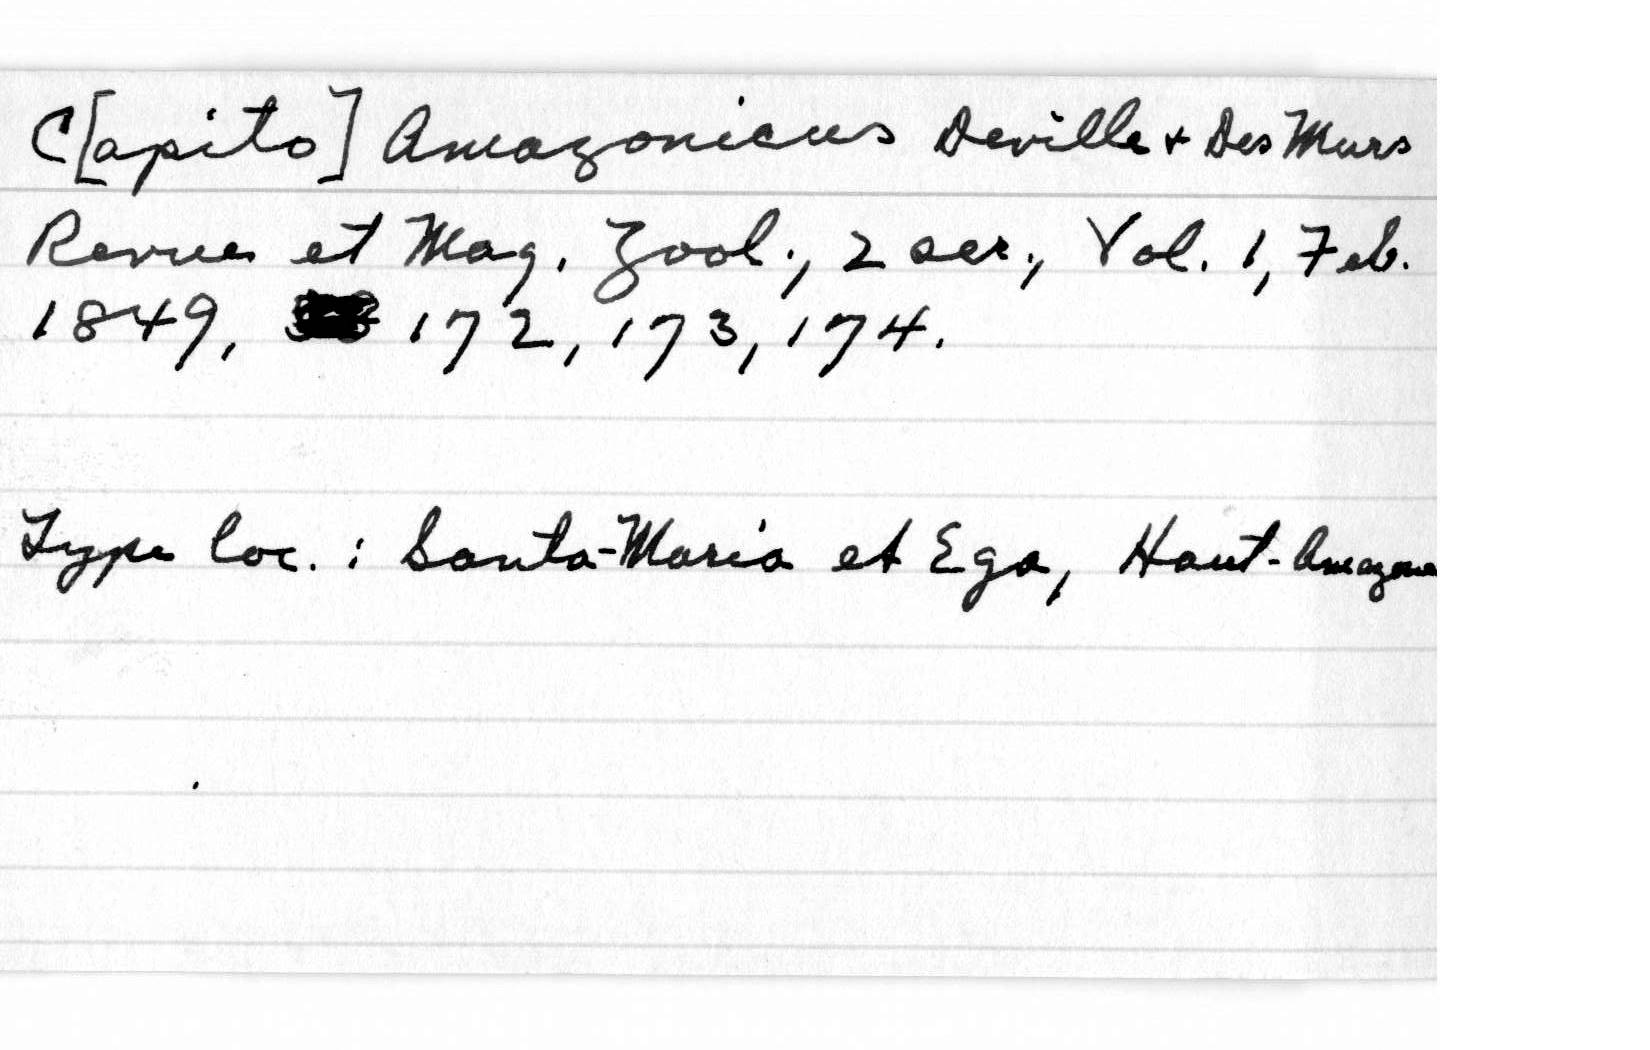 C[apito] Amazonicus Deville & Des Murs
Revue et Mag. Zool., 2 ser., Vol. 1, Feb.
1849, 172, 173, 174.
Type loc. : Santa-Maria et Ega, Haut-Amazone